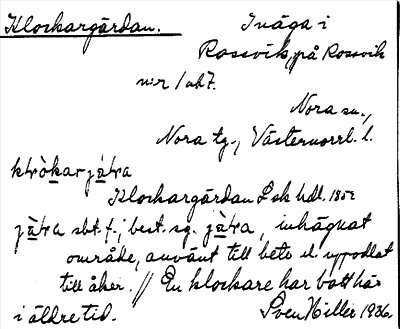 Klockargärdan. Inäga i
Rossvik, på Rossvik
n:r 1 ab7.
Nora sn.,
Nora tg., Västernorrl. l.
Klockargärdan Lsk hdl. 1852
sbt. f.; best. sg. jä̀tra, inhägnat
område, använt till bete el. uppodlat
till åker. // En klockare har bott här
i äldre tid. Sven Hiller 1936.